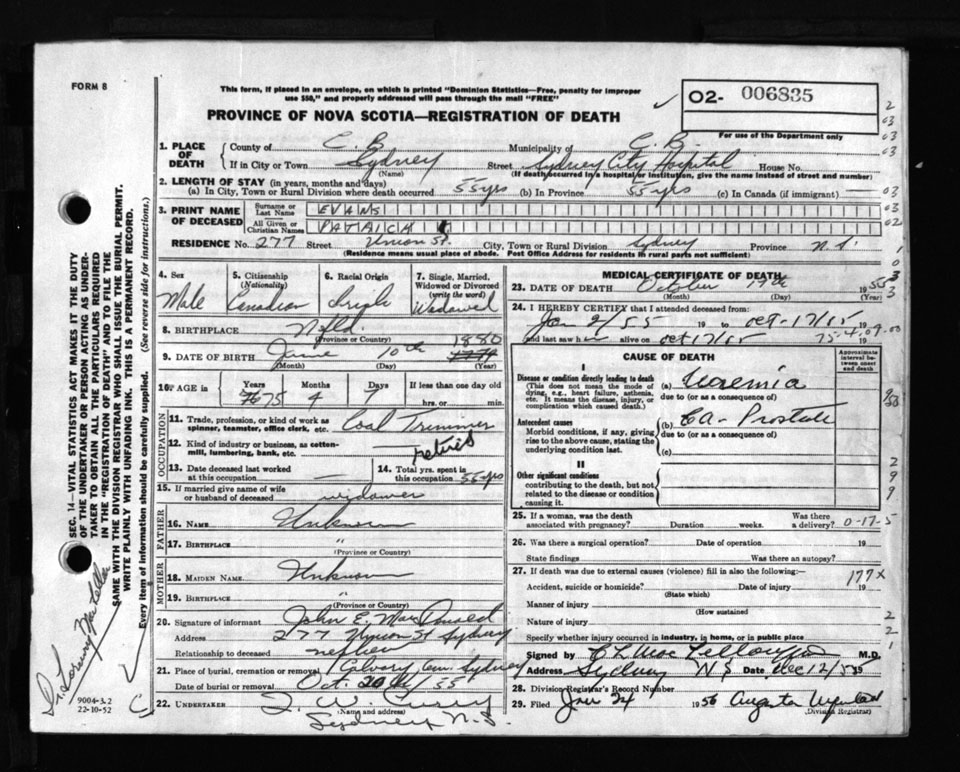 FORM 8
This form, if placed in an envelope, on which is printed "Dominion Statistics—Free, penalty for improper
use $50," and properly addressed will pass through the mail "FREE"
O2- 006835
For use of the Department only
PROVINCE OF NOVA SCOTIA—REGISTRATION OF DEATH
1. PLACE OF DEATH
County of C. B. Municipality of C. B.
If in City or Town Sydney Street Sydney City Hospital House No.
(Name) (If death occurred in a hospital or institution, give the name instead of street and number)
2. LENGTH OF STAY (in years, months and days)
(a) In City, Town or Rural Division where death occurred 55 yrs (b) In Province 55 yrs (c) In Canada (if immigrant)
3. PRINT NAME OF DECEASED
Surname or Last Name EVANS
All Given or Christian Names PATRICK
RESIDENCE No. 277 Street Union St. City, Town or Rural Division Sydney Province N.S.
(Residence means usual place of abode. Post Office Address for residents in rural parts not sufficient)
4. Sex
Male
5. Citizenship (Nationality)
Canadian
6. Racial Origin
7. Single, Married, Widowed or Divorced (write the word)
Widowed
8. BIRTHPLACE Nfld.
(Province or Country)
9. DATE OF BIRTH June 10th 1880
(Month) (Day) (Year)
10. AGE in Years Months Days If less than one day old
75 4 7 hrs. or min.
OCCUPATION
11. Trade, profession, or kind of work as spinner, teamster, office clerk, etc. Coal Trimmer
12. Kind of industry or business, as cotton-mill, lumbering, bank, etc. retired
13. Date deceased last worked at this occupation
14. Total yrs. spent in this occupation 55 yrs
15. If married give name of wife or husband of deceased widower
FATHER
16. NAME Unknown
17. BIRTHPLACE "
(Province or Country)
MOTHER
18. MAIDEN NAME Unknown
19. BIRTHPLACE "
(Province or Country)
20. Signature of informant John E. MacDonald
Address 277 Union St Sydney
Relationship to deceased nephew
21. Place of burial, cremation or removal Calvary Cem Sydney
Date of burial or removal Oct. 20th/55
22. UNDERTAKER
(Name and address)
Sydney N.S.
MEDICAL CERTIFICATE OF DEATH
23. DATE OF DEATH October 17th 1955
(Month) (Day) (Year)
24. I HEREBY CERTIFY that I attended deceased from:
Jan 2/55 19 to oct-17/55
and last saw h alive on oct 17/55 19
CAUSE OF DEATH
Approximate interval between onset and death
I
Disease or condition directly leading to death
(This does not mean the mode of dying, e.g., heart failure, asthenia, etc. It means the disease, injury, or complication which caused death.)
(a) Uremia
due to (or as a consequence of)
Antecedent causes
Morbid conditions, if any, giving rise to the above cause, stating the underlying condition last.
(b) CA - Prostate
due to (or as a consequence of)
(c)
II
Other significant conditions
contributing to the death, but not related to the disease or condition causing it.
25. If a woman, was the death associated with pregnancy? Duration weeks. Was there a delivery?
0-17-5
26. Was there a surgical operation? Date of operation 19
State findings Was there an autopsy?
27. If death was due to external causes (violence) fill in also the following:—
177X
Accident, suicide or homicide? Date of injury 19
(State which)
Manner of injury
(How sustained)
Nature of injury
Specify whether injury occurred in industry, in home, or in public place
Signed by M.D.
Address Sydney N S Date Dec 12/55 19
28. Division Registrar's Record Number
29. Filed Jan 24 1956 Augusta
(Division Registrar)
SEC. 14—VITAL STATISTICS ACT MAKES IT THE DUTY
OF THE UNDERTAKER OR PERSON ACTING AS UNDER-
TAKER TO OBTAIN ALL THE PARTICULARS REQUIRED
IN THE "REGISTRATION OF DEATH" AND TO FILE THE
SAME WITH THE DIVISION REGISTRAR WHO SHALL ISSUE THE BURIAL PERMIT.
WRITE PLAINLY WITH UNFADING INK. THIS IS A PERMANENT RECORD.
Every item of information should be carefully supplied. (See reverse side for instructions.)
9004-3.2
22-10-52
C